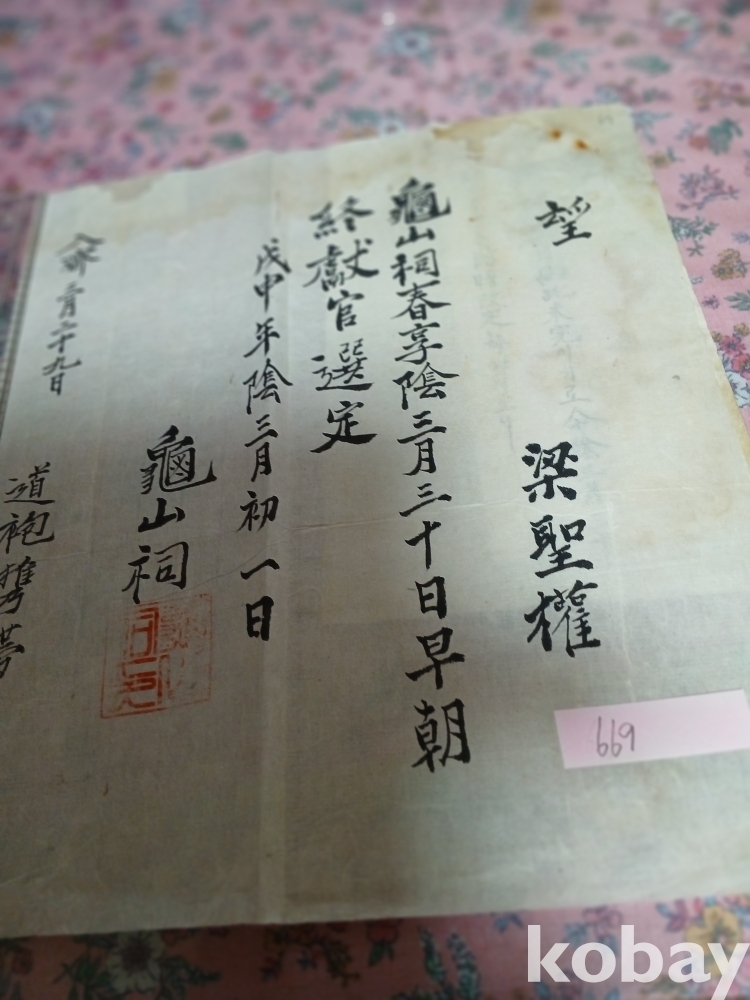 望
梁聖權
龜山祠春享陰三月三十日早朝
終獻官選定
戊申年陰三月初一日
龜山祠
入齋三月二十九日
道袍携帶
669
kobay